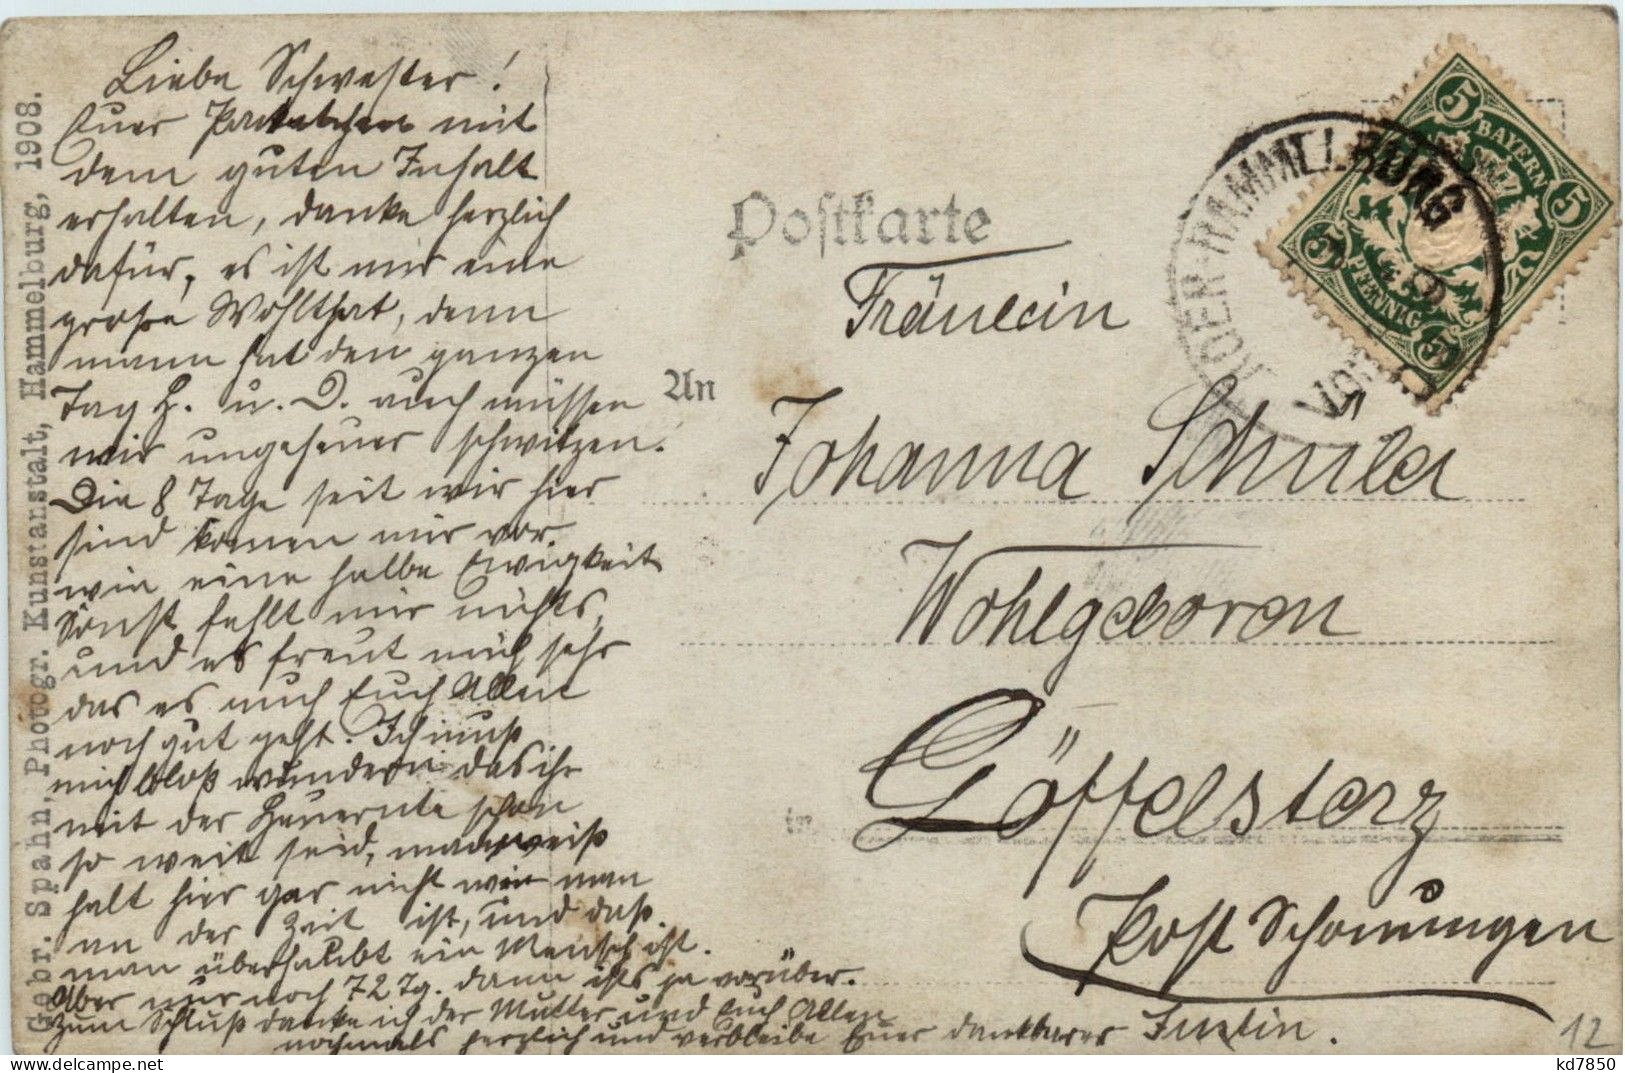 Liebe Schwester!
Euer Packetchen mit
dem guten Inhalt
erhalten, danke herzlich
dafür, es ist mir eine
große Wohlthat, denn
mann hat den ganzen
Tag H. u. D. auch müssen
wir ungeheuer schwitzen.
Die 8 Tage seit wir hier
sind komen mir vor
wie eine halbe Ewigkeit
Sonst fehlt mir nichts,
und es freut mich sehr
das es auch Euch Allen
noch gut geht. Ich muß
mich bloß wundern das ihr
mit der Heuernte schon
so weit seid, man weiß
halt hier gar nicht wie man
an der Zeit ist, und daß
man überhaubt ein Mensch ist.
Aber nur noch 72 Tg. dann ists ja vorüber.
Zum Schluß danke ich der Mutter und Euch Allen
nochmals herzlich und verbleibe Euer dankbarer Justin.
Gebr. Spahn, Photogr. Kunstanstalt, Hammelburg, 1908.
Postkarte
An
Fräulein
Johanna Schüler
Wohlgeboren
in
Göffelsterz
Post Schonungen
HAMMELBURG
5 BAYERN 5
5 PFENNIG 5
12
kd7850